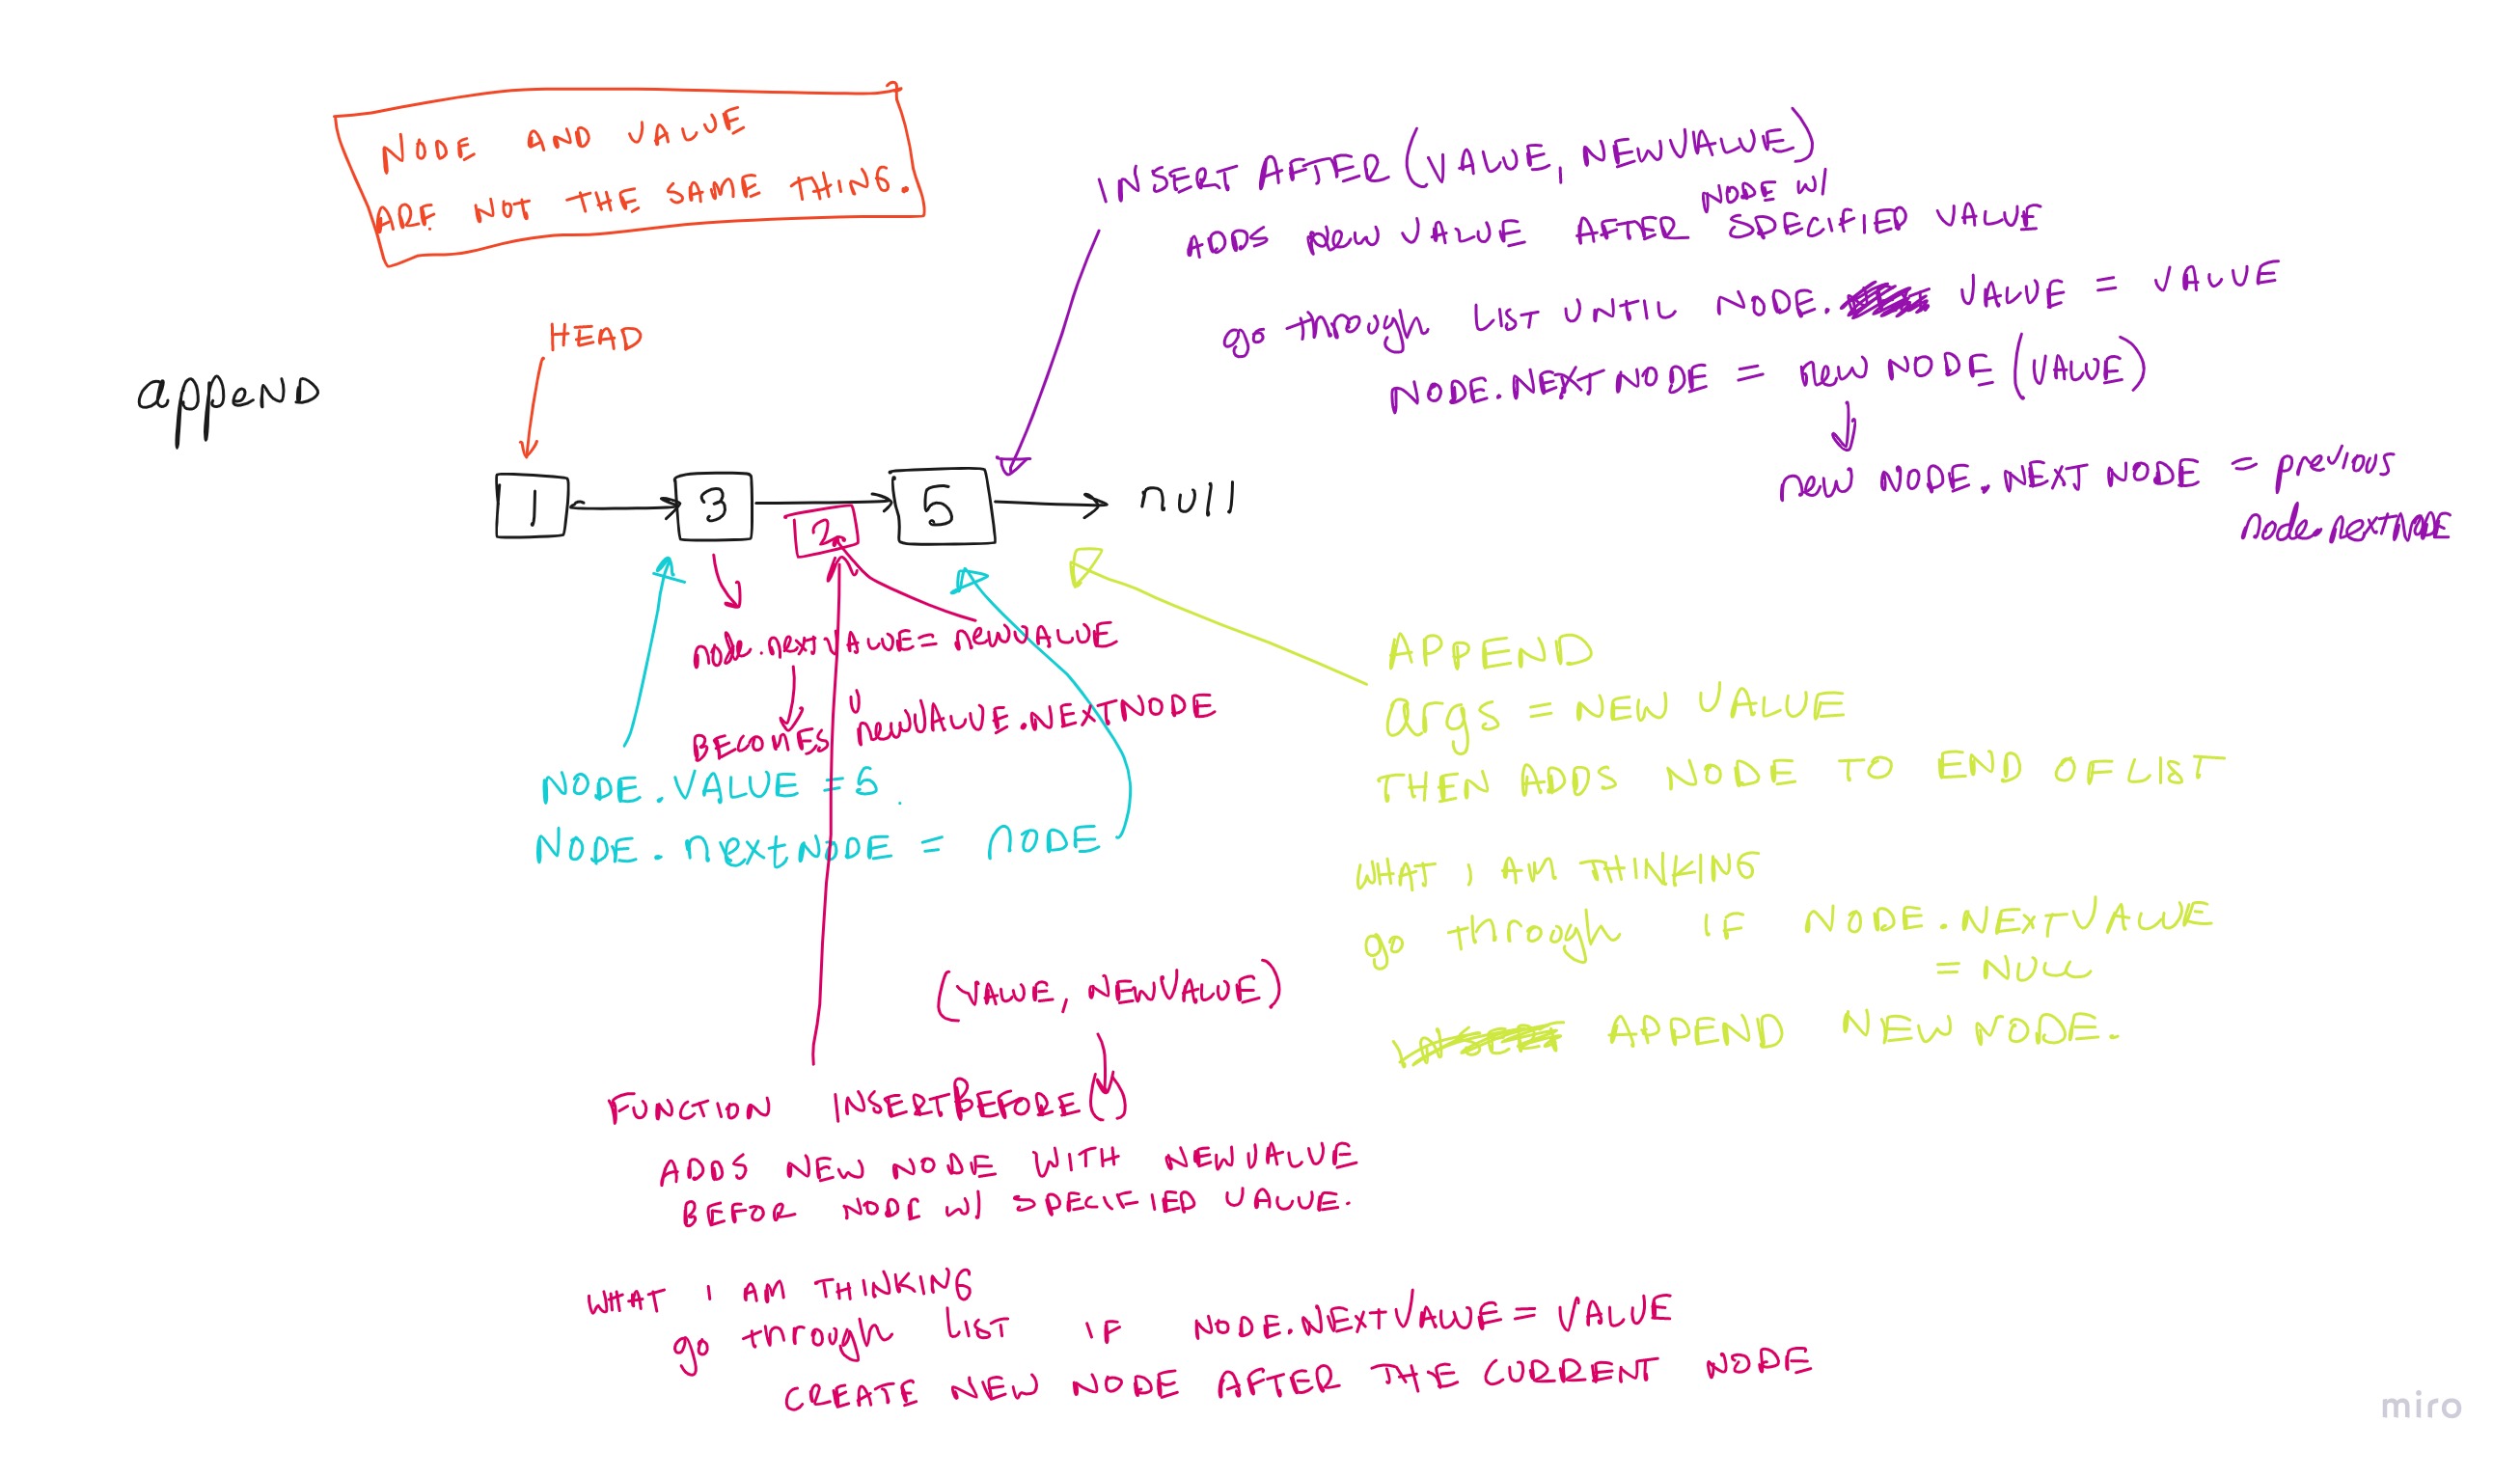 NODE AND VALUE
ARE NOT THE SAME THING.
HEAD
appeND
1
3
2
5
null
INSERT AFTER (VALUE, NEWVALUE)
NODE W/
ADDS NEW VALUE AFTER SPECIFIED VALUE
go through LIST UNTIL NODE. VALUE = VALUE
NODE.NEXTNODE = new NODE (VALUE)
new NODE.NEXT NODE = previous
node.nextNODE
node.nextVALUE = newVALUE
BECOMES newVALUE.NEXTNODE
NODE.VALUE = 5.
NODE.nextNODE = NODE
APPEND
args = NEW VALUE
THEN ADDS NODE TO END OF LIST
WHAT I AM THINKING
go through IF NODE.NEXTVALUE
= NULL
APPEND NEW NODE.
(VALUE, NEWVALUE)
FUNCTION INSERTBEFORE()
ADDS NEW NODE WITH NEWVALUE
BEFOR NODE W/ SPECIFIED VALUE.
WHAT I AM THINKING
go through LIST IF NODE.NEXTVALUE = VALUE
CREATE NEW NODE AFTER THE CURRENT NODE
miro